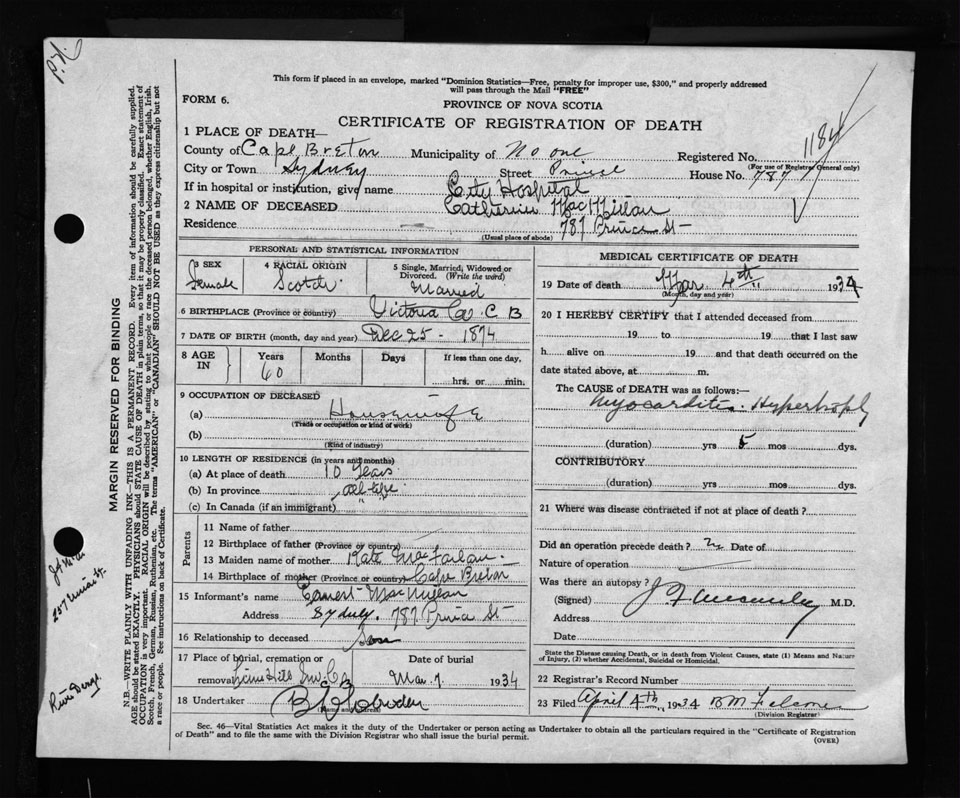 This form if placed in an envelope, marked "Dominion Statistics—Free, penalty for improper use, $300," and properly addressed
will pass through the Mail "FREE"
FORM 6.
PROVINCE OF NOVA SCOTIA
CERTIFICATE OF REGISTRATION OF DEATH
1184
1 PLACE OF DEATH—
County of Cape Breton Municipality of No one Registered No.
(For use of Registrar General only)
City or Town Sydney Street Prince House No. 787
If in hospital or institution, give name City Hospital
2 NAME OF DECEASED Catherine MacMillan
Residence 787 Prince St
(Usual place of abode)
PERSONAL AND STATISTICAL INFORMATION
3 SEX 4 RACIAL ORIGIN 5 Single, Married, Widowed or
Divorced. (Write the word)
Female Scotch Married
6 BIRTHPLACE (Province or country) Victoria Co. C B
7 DATE OF BIRTH (month, day and year) Dec 25 - 1874
8 AGE IN Years Months Days If less than one day,
60 hrs. or min.
9 OCCUPATION OF DECEASED
(a) Housewife
(Trade or occupation or kind of work)
(b)
(Kind of industry)
10 LENGTH OF RESIDENCE (in years and months)
(a) At place of death 10 Years
(b) In province all life
(c) In Canada (if an immigrant) " "
Parents
11 Name of father
12 Birthplace of father (Province or country)
13 Maiden name of mother Kate
14 Birthplace of mother (Province or country) Cape Breton
15 Informant's name Earnest MacMillan
Address Sydney. 787 Prince St
16 Relationship to deceased Son
17 Place of burial, cremation or Date of burial
removal C B Mar. 7. 1934
18 Undertaker
(Name and address)
MEDICAL CERTIFICATE OF DEATH
19 Date of death Mar 4th 1934
(Month, day and year)
20 I HEREBY CERTIFY that I attended deceased from
19 to 19 that I last saw
h alive on 19 and that death occurred on
date stated above, at m.
The CAUSE OF DEATH was as follows:—
Myocarditis. Hypertrophy
(duration) yrs 5 mos dys.
CONTRIBUTORY
(duration) yrs mos dys.
21 Where was disease contracted if not at place of death?
Did an operation precede death? Date of
Nature of operation
Was there an autopsy?
(Signed) M.D.
Address
Date
State the Disease causing Death, or in death from Violent Causes, state (1) Means and Nature
of Injury, (2) whether Accidental, Suicidal or Homicidal.
22 Registrar's Record Number
23 Filed April 4th 1934
(Division Registrar)
Sec. 46—Vital Statistics Act makes it the duty of the Undertaker or person acting as Undertaker to obtain all the particulars required in the "Certificate of Registration
of Death" and to file the same with the Division Registrar who shall issue the burial permit.
(OVER)
MARGIN RESERVED FOR BINDING
N.B.—WRITE PLAINLY WITH UNFADING INK—THIS IS A PERMANENT RECORD. Every item of information should be carefully supplied.
AGE should be stated EXACTLY. PHYSICIANS should STATE CAUSE OF DEATH in plain terms, so that it may be properly classified. Exact statement of
OCCUPATION is very important. RACIAL ORIGIN will be described by stating to what people or race the deceased person belonged, whether English, Irish,
Scotch, French, German, Russian, Ruthenian, etc. The terms "AMERICAN" or "CANADIAN" SHOULD NOT BE USED as they express citizenship but not
a race or people. See instructions on back of Certificate.